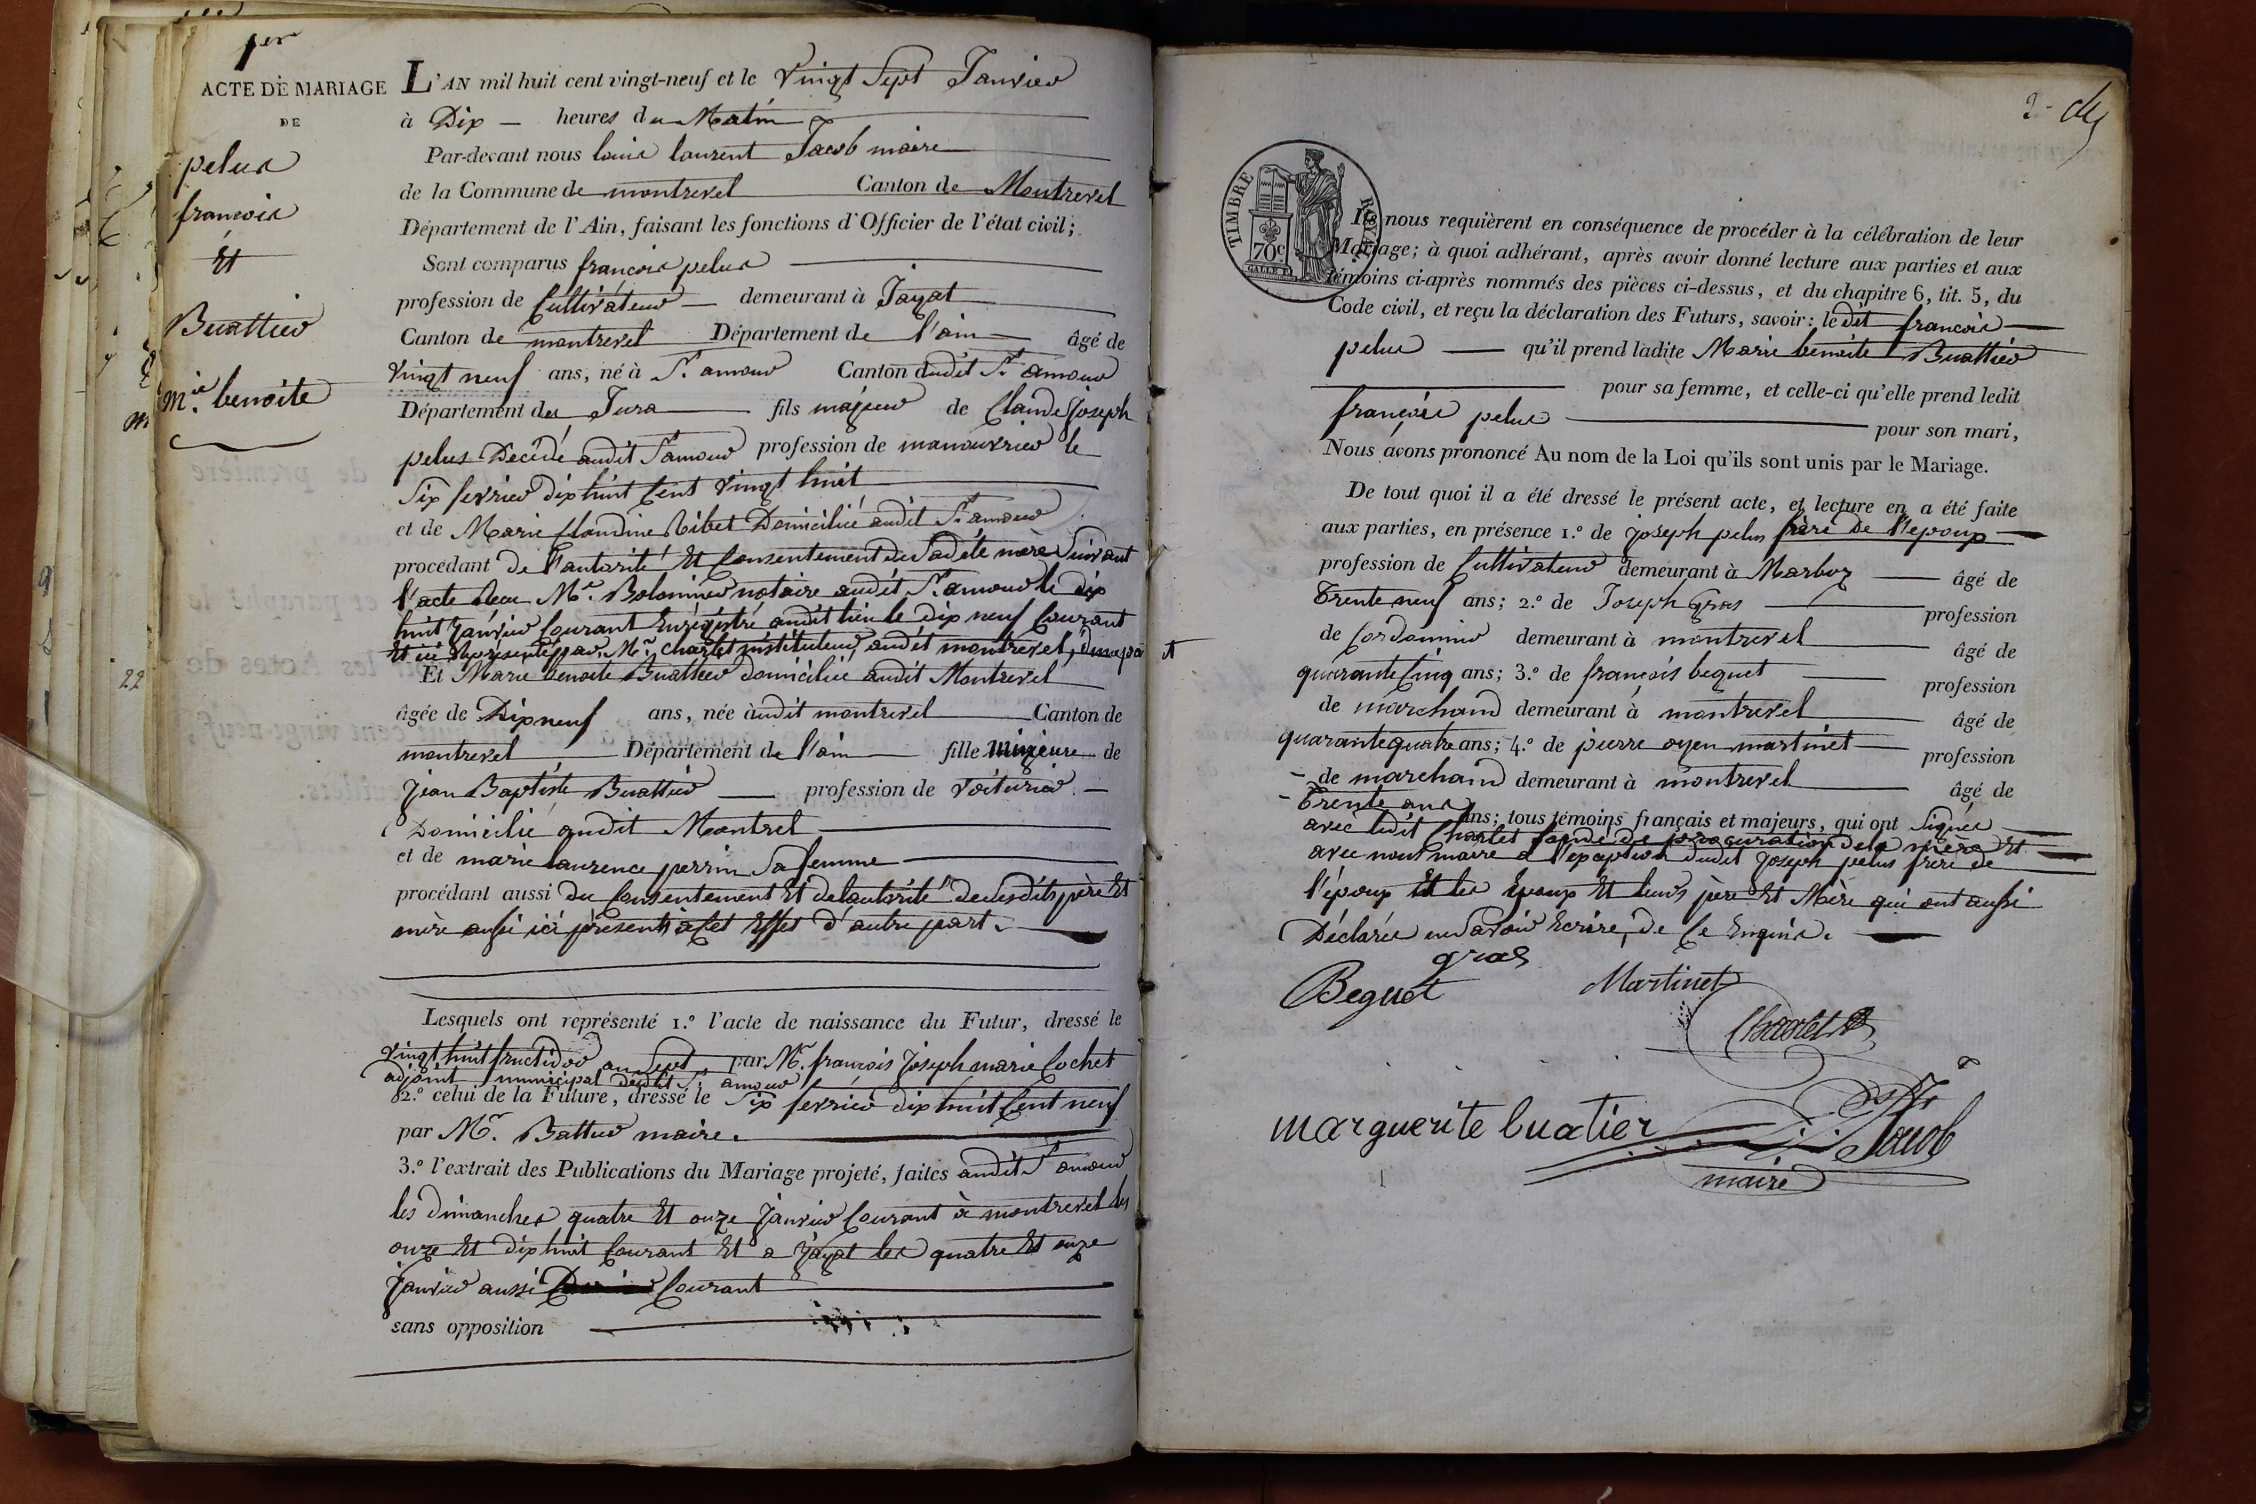 1er
ACTE DE MARIAGE
DE
pelus
francois
Et
Buattier
Mie. benoite
L'AN mil huit cent vingt-neuf et le Vingt Sept Janvier
à Dix heures du Matin
Par-devant nous louis laurent Jacob maire
de la Commune de montrevel Canton de Montrevel
Département de l'Ain, faisant les fonctions d'Officier de l'état civil;
Sont comparus françois pelus
profession de Cultivateur demeurant à Jayat
Canton de montrevel Département de l'ain âgé de
Vingt neuf ans, né à St. amour Canton dudit St. amour
Département du Jura fils majeur de Claude Joseph
pelus Décédé audit St amour profession de manouvrier le
Six fevrier dix huit Cent Vingt huit
et de Marie Claudine Ribet Domiciliée audit St. amour
procédant De l'autorité Et Consentement de Sadite mère Suivant
l'acte Reçu Me. notaire audit St. amour le dix
huit Janvier Courant Enrégistré audit lieu le dix neuf Courant
Et ici Représentée par Mr. Charlet instituteur audit montrevel, d'une part
Et Marie benoite Buattier domiciliée audit Montrevel
âgée de Dix neuf ans, née audit montrevel Canton de
montrevel Département de l'ain fille Mineure de
Jean Baptiste Buattier profession de Voiturier
Domicilié audit Montrel
et de marie laurence perrin Sa femme
procédant aussi du Consentement Et de l'autorité de sesdits père Et
mère aussi ici présents à Cet Effet d'autre part.
Lesquels ont représenté 1.º l'acte de naissance du Futur, dressé le
Vingt huit fructidor an Sept par Mr. françois Joseph marie Cochet
adjoint municipal dudit St. amour
2.º celui de la Future, dressé le Six fevrier dix huit Cent neuf
par Mr. Battur maire.
3.º l'extrait des Publications du Mariage projeté, faites audit St amour
les dimanches quatre Et onze Janvier Courant à montrevel les
onze Et dix huit Courant Et a Jayat les quatre Et onze
Janvier aussi Courant
sans opposition
22
2
TIMBRE ROYAL
70c
Ils nous requièrent en conséquence de procéder à la célébration de leur
Mariage; à quoi adhérant, après avoir donné lecture aux parties et aux
témoins ci-après nommés des pièces ci-dessus, et du chapitre 6, tit. 5, du
Code civil, et reçu la déclaration des Futurs, savoir: le dit francois
pelus qu'il prend ladite Marie benoite Buattier
pour sa femme, et celle-ci qu'elle prend ledit
françois pelus pour son mari,
Nous avons prononcé Au nom de la Loi qu'ils sont unis par le Mariage.
De tout quoi il a été dressé le présent acte, et lecture en a été faite
aux parties, en présence 1.º de Joseph pelus frère De l'epoux
profession de Cultivateur demeurant à Marboz âgé de
Trente neuf ans; 2.º de Joseph Gras profession
de Cordonnier demeurant à montrevel âgé de
quarante Cinq ans; 3.º de françois beguet profession
de marchand demeurant à montrevel âgé de
quarante quatre ans; 4.º de pierre oyen martinet profession
de marchand demeurant à montrevel âgé de
Trente ans ans; tous témoins français et majeurs, qui ont Signés
avec ledit Charlet fondé de procuration de la mère Et
avec nous maire a l'exception dudit Joseph pelus frère de
l'époux Et les Epoux Et leurs père Et Mère qui ont aussi
Déclarés ne Savoir Ecrire, De Ce Enquis.
gras
Beguet Martinet
Charlet
marguerite buatier
Jacob
maire